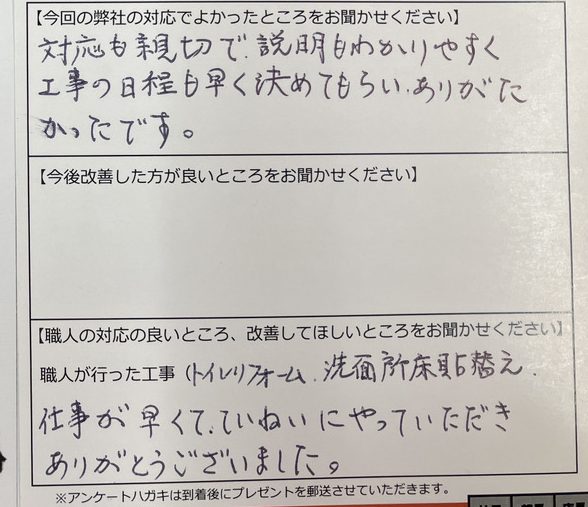 【今回の弊社の対応でよかったところをお聞かせください】
対応も親切で、説明もわかりやすく
工事の日程も早く決めてもらい、ありがた
かったです。
【今後改善した方が良いところをお聞かせください】
【職人の対応の良いところ、改善してほしいところをお聞かせください】
職人が行った工事（トイレリフォーム、洗面所床貼替え、
仕事が早くて、ていねいにやっていただき
ありがとうございました。
※アンケートハガキは到着後にプレゼントを郵送させていただきます。